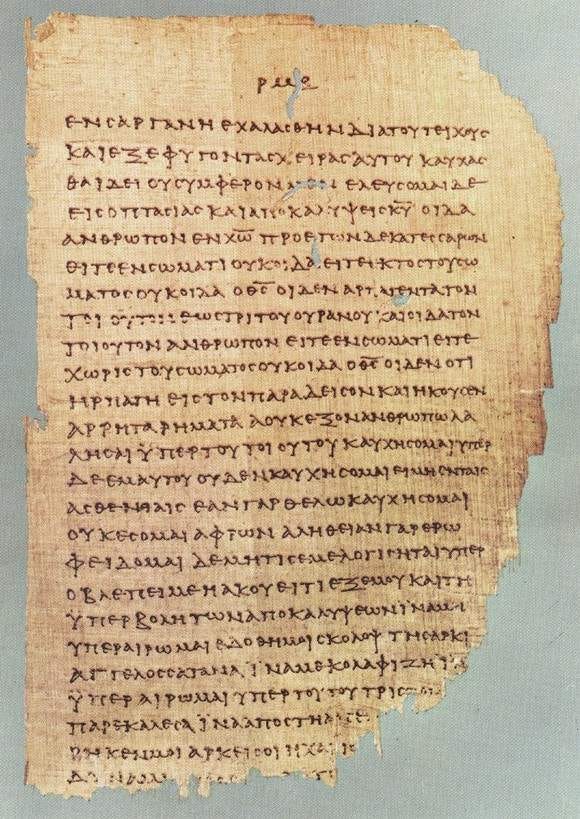 ΡΜΕ
ΕΝϹΑΡΓΑΝΗΕΧΑΛΑϹΘΗΝΔΙΑΤΟΥΤΕΙΧΟΥϹ
ΚΑΙΕΞΕΦΥΓΟΝΤΑϹΧΕΙΡΑϹΑΥΤΟΥΚΑΥΧΑϹ
ΘΑΙΔΕΙΟΥϹΥΜΦΕΡΟΝ ΕΛΕΥϹΟΜΑΙΔΕ
ΕΙϹΟΠΤΑϹΙΑϹΚΑΙΑΠΟΚΑΛΥΨΕΙϹΚ̅Υ̅ΟΙΔΑ
ΑΝΘΡΩΠΟΝΕΝΧ̅Ω̅ΠΡΟΕΤΩΝΔΕΚΑΤΕϹϹΑΡΩΝ
ΕΙΤΕΕΝϹΩΜΑΤΙΟΥΚΟΙΔΑΕΙΤΕΙΚΤΟϹΤΟΥϹΩ
ΜΑΤΟϹΟΥΚΟΙΔΑΟΘ̅Ϲ̅ΟΙΔΕΝΑΡΠΑΓΕΝΤΑΤΟΝ
ΤΟΙΟΥΤΟΝΕΩϹΤΡΙΤΟΥΟΥΡΑΝΟΥΚΑΙΟΙΔΑΤΟΝ
ΤΟΙΟΥΤΟΝΑΝΘΡΩΠΟΝΕΙΤΕΕΝϹΩΜΑΤΙΕΙΤΕ
ΧΩΡΙϹΤΟΥϹΩΜΑΤΟϹΟΥΚΟΙΔΑΟΘ̅Ϲ̅ΟΙΔΕΝΟΤΙ
ΗΡΠΑΓΗΕΙϹΤΟΝΠΑΡΑΔΕΙϹΟΝΚΑΙΗΚΟΥϹΕΝ
ΑΡΡΗΤΑΡΗΜΑΤΑΑΟΥΚΕΞΟΝΑΝΘΡΩΠΩΛΑ
ΛΗϹΑΙΫΠΕΡΤΟΥΤΟΙΟΥΤΟΥΚΑΥΧΗϹΟΜΑΙΥΠΕΡ
ΔΕΕΜΑΥΤΟΥΟΥΔΕΝΚΑΥΧΗϹΟΜΑΙΕΙΜΗΕΝΤΑΙϹ
ΑϹΘΕΝΙΑΙϹΕΑΝΓΑΡΘΕΛΩΚΑΥΧΗϹΟΜΑΙ
ΟΥΚΕϹΟΜΑΙΑΦΡΩΝΑΛΗΘΕΙΑΝΓΑΡΕΡΩ
ΦΕΙΔΟΜΑΙΔΕΜΗΤΙϹΕΜΕΛΟΓΙϹΗΤΑΙΥΠΕΡ
ΟΒΛΕΠΕΙΜΕΗΑΚΟΥΕΙΤΙΕΞΕΜΟΥΚΑΙΤΗ
ΫΠΕΡΒΟΛΗΤΩΝΑΠΟΚΑΛΥΨΕΩΝΪΝΑΜΗ
ΥΠΕΡΑΙΡΩΜΑΙΕΔΟΘΗΜΟΙϹΚΟΛΟΨΤΗϹΑΡΚΙ
ΑΓΓΕΛΟϹϹΑΤΑΝΑΪΝΑΜΕΚΟΛΑΦΙΖΗΪΝ
ΫΠΕΡΑΙΡΩΜΑΙΥΠΕΡΤΟΥΤΟΥΤΡΙϹ
ΠΑΡΕΚΑΛΕϹΑΪΝΑΑΠΟϹΤΗΑ
ΡΗΚΕΝΜΟΙΑΡΚΕΙϹΟΙΗΧΑΡΙϹ